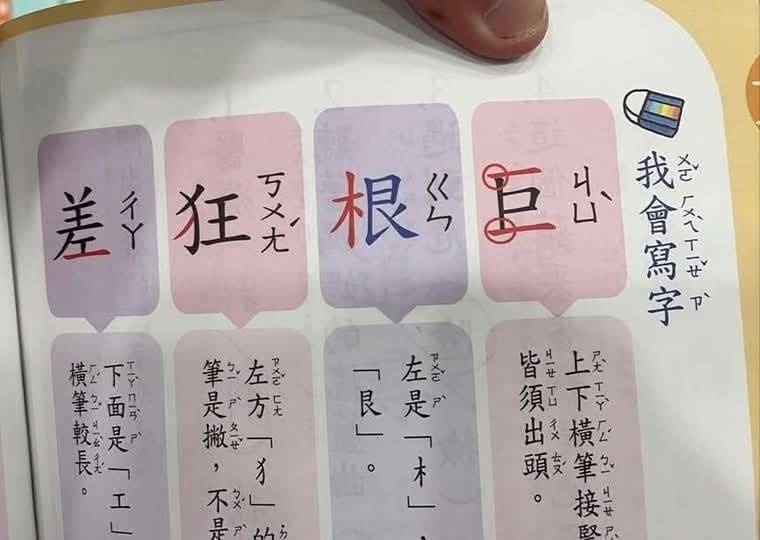 我會寫字
ㄨㄛˇ ㄏㄨㄟˋ ㄒㄧㄝˇ ㄗˋ
巨 ㄐㄩˋ
上下橫筆接
皆須出頭。
根 ㄍㄣ
左是「木」，
「艮」。
狂 ㄎㄨㄤˊ
左方「犭」的
筆是撇，不是
差 ㄔㄚ
下面是「工」
橫筆較長。